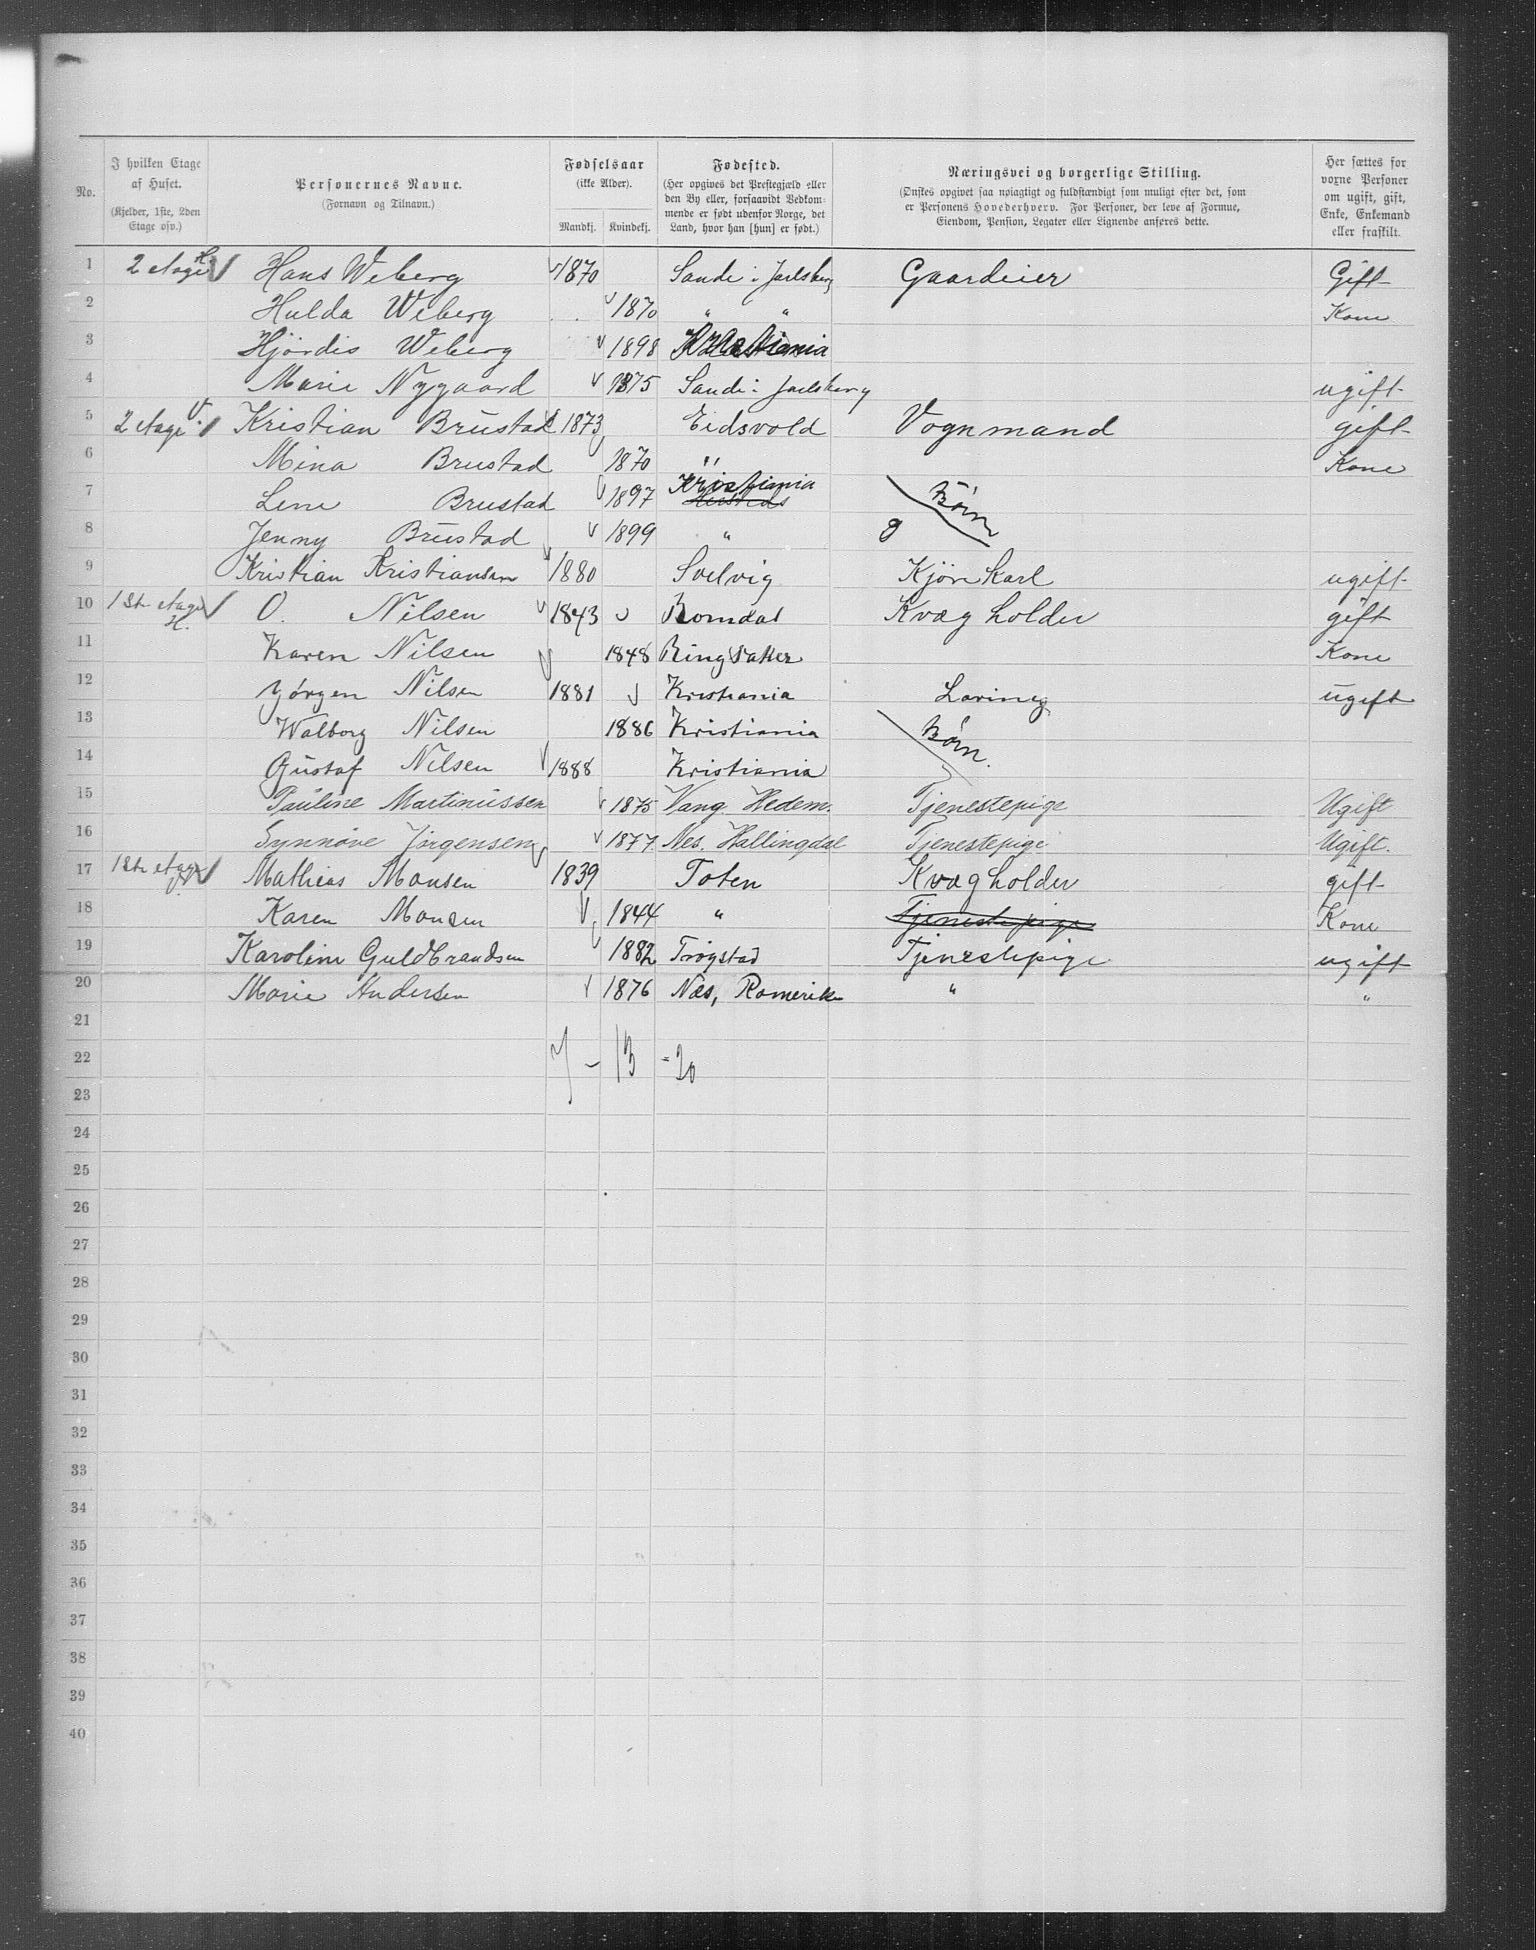 No.
I hvilken Etage af Huset. (Kjelder, 1ste, 2den Etage osv.)
Personernes Navne. (Fornavn og Tilnavn.)
Fødselsaar (ikke Alder). Mandkj. Kvindekj.
Fødested. (Her opgives det Prestegjæld eller den By eller, forsaavidt Vedkommende er født udenfor Norge, det Land, hvor han [hun] er født.)
Næringsvei og borgerlige Stilling. (Ønskes opgivet saa nøiagtigt og fuldstændigt som muligt efter det, som er Personens Hovederhverv. For Personer, der leve af Formue, Eiendom, Pension, Legater eller Lignende anføres dette.)
Her sættes for voxne Personer om ugift, gift, Enke, Enkemand eller fraskilt.
1 2 etage H Hans Weberg 1870 Sande i Jarlsberg Gaardeier Gift
2 Hulda Weberg 1870 " " Kone
3 Hjördis Weberg 1898 Kristiania
4 Marie Nygaard 1875 Sande i Jarlsberg ugift
5 2 etage V. Kristian Brustad 1873 Eidsvold Vognmand gift
6 Mina Brustad 1870 " Kone
7 Lene Brustad 1897 Kristiania Börn
8 Jenny Brustad 1899 "
9 Kristian Kristiansen 1880 Svelvig Kjörekarl ugift
10 1ste etage H. O. Nilsen 1843 Romdal Kvægholder gift
11 Karen Nilsen 1848 Ringsaker Kone
12 Jörgen Nilsen 1881 Kristiania ugift
13 Walborg Nilsen 1886 Kristiania Börn.
14 Gustaf Nilsen 1888 Kristiania
15 Pauline Martinussen 1875 Vang Hedem. Tjenestepige Ugift
16 Synnöve Jörgensen 1877 Nes. Hallingdal Tjenestepige Ugift.
17 1ste etage V. Mathias Monsen 1839 Toten Kvægholder gift
18 Karen Monsen 1844 " Tjenestepige Kone
19 Karoline Guldbrandsen 1882 Trögstad Tjenestepige ugift
20 Marie Andersen 1876 Næs, Romerike " "
21
22 7 - 13 = 20
23
24
25
26
27
28
29
30
31
32
33
34
35
36
37
38
39
40